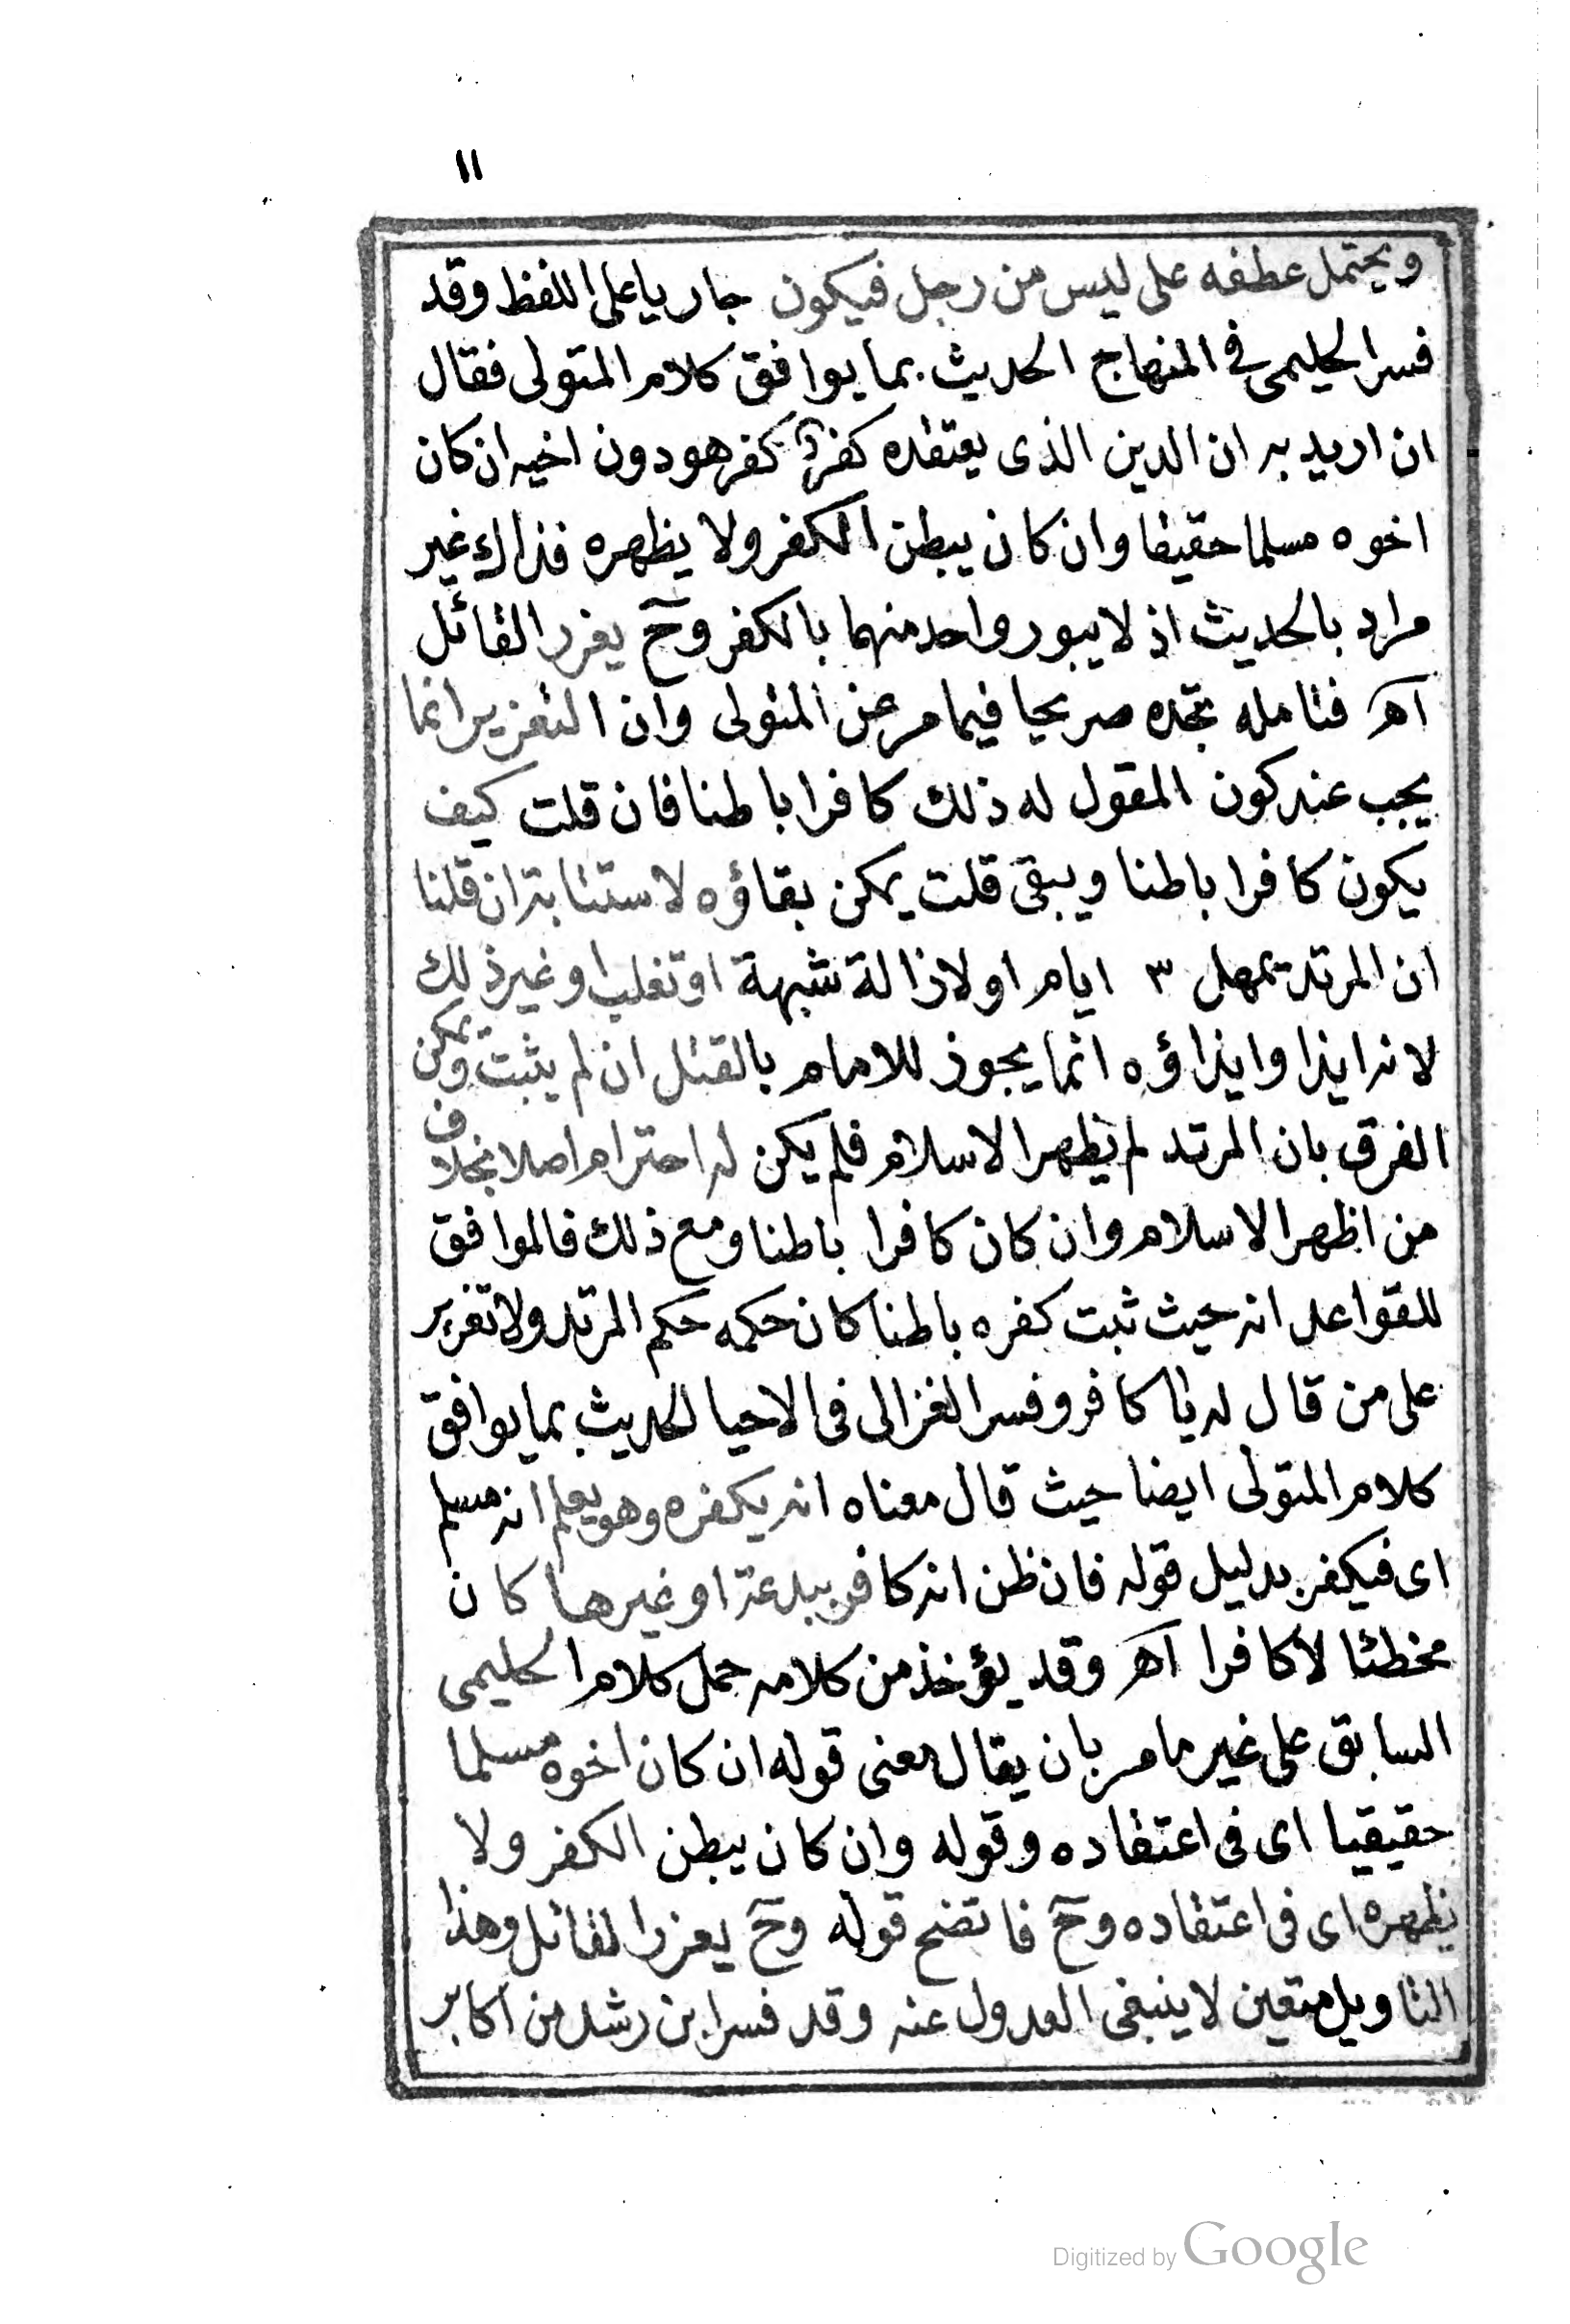 ١١
ويحتمل عطفه على ليس من رجل فيكون جاريا على اللفظ وقد
فسر الحليمى فى المنهاج الحديث بما يوافق كلام المتولى فقال
ان اريد به ان الدين الذى يعتقده كفر كفر هو دون اخيه ان كان
اخوه مسلما حقيقا وان كان يبطن الكفر ولا يظهره فذاك غير
مراد بالحديث اذ لا يبور واحد منهما بالكفر وح يعزر القائل
اه فتامله تجده صريحا فيما مر عن المتولى وان التعزير انما
يجب عند كون المقول له ذلك كافرا باطنا فان قلت كيف
يكون كافرا باطنا ويبقى قلت يمكن بقاؤه لاستتابته ان قلنا
ان المرتد يمهل ٣ ايام او لازالة شبهة او تغلب او غير ذلك
لانه ايذا وايذاؤه انما يجوز للامام بالقتل ان لم يثبت ويمكن
الفرق بان المرتد لم يظهر الاسلام فلم يكن له احترام اصلا بخلاف
من اظهر الاسلام وان كان كافرا باطنا ومع ذلك فالموافق
للقواعد انه حيث ثبت كفره باطنا كان حكمه حكم المرتد ولا تعزير
على من قال له يا كافر وفسر الغزالى فى الاحيا الحديث بما يوافق
كلام المتولى ايضا حيث قال معناه انه يكفره وهو يعلم انه مسلم
اى فيكفر بدليل قوله فان ظن انه كافر ببدعة او غيرها كان
مخطئا لا كافرا اه وقد يؤخذ من كلامه حمل كلام الحليمى
السابق على غير ما مر بان يقال معنى قوله ان كان اخوه مسلما
حقيقيا اى فى اعتقاده وقوله وان كان يبطن الكفر ولا
يظهره اى فى اعتقاده وح فاتضح قوله وح يعزر القائل وهذا
التاويل متعين لا ينبغى العدول عنه وقد فسر ابن رشد من اكابر
Digitized by Google